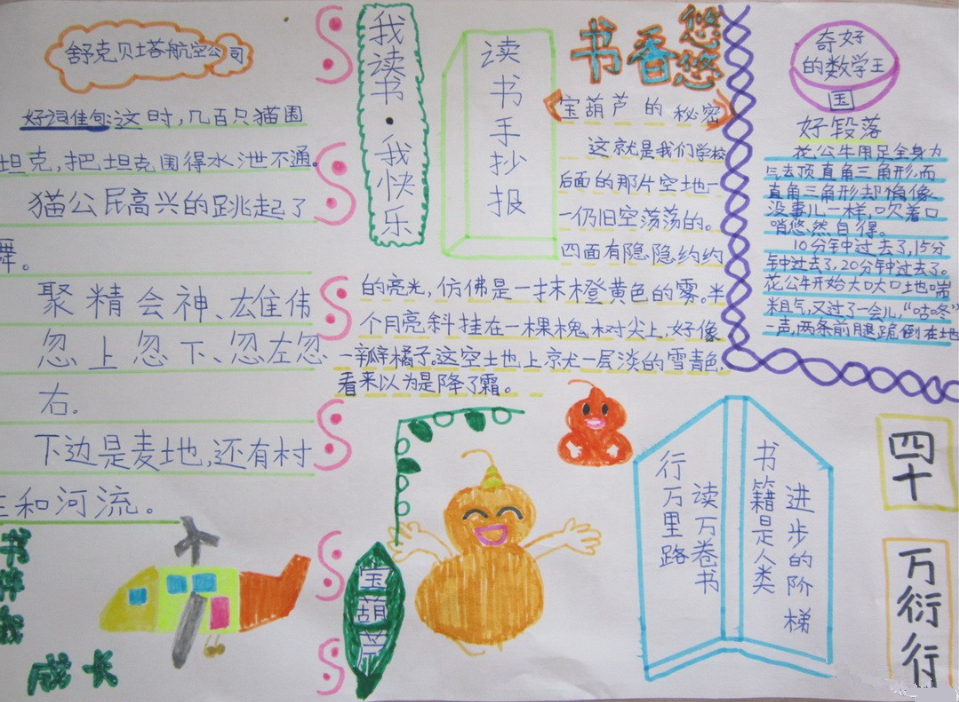 舒克贝塔航空公司
好词佳句:这时,几百只猫围
坦克,把坦克围得水泄不通。
猫公民高兴的跳起了
舞。
聚精会神、雄伟
忽上忽下、忽左忽
右。
下边是麦地,还有村
庄和河流。
书伴我
成长
我读书·我快乐
读书手抄报
书香悠悠
宝葫芦的秘密
这就是我们学校
后面的那片空地一
一仍旧空荡荡的。
四面有隐隐约约
的亮光,仿佛是一抹橙黄色的雾。半
个月亮斜挂在一棵槐树尖上,好像
一瓣橘子。这空土也上京尤一层淡的雪青色,
看来以为是降了霜。
宝葫芦
奇好
的数学王
国
好段落
花公牛用足全身力
去顶直角三角形,而
直角三角形却偏像
没事儿一样,吹着口
哨悠然自得。
10分钟过去了,15分
钟过去了,20分钟过去了。
花公牛开始大口大口地喘
粗气,又过了一会儿,“咕咚”
一声,两条前腿跪倒在地
行万里路
读万卷书
书籍是人类
进步的阶梯
四十
万衍行